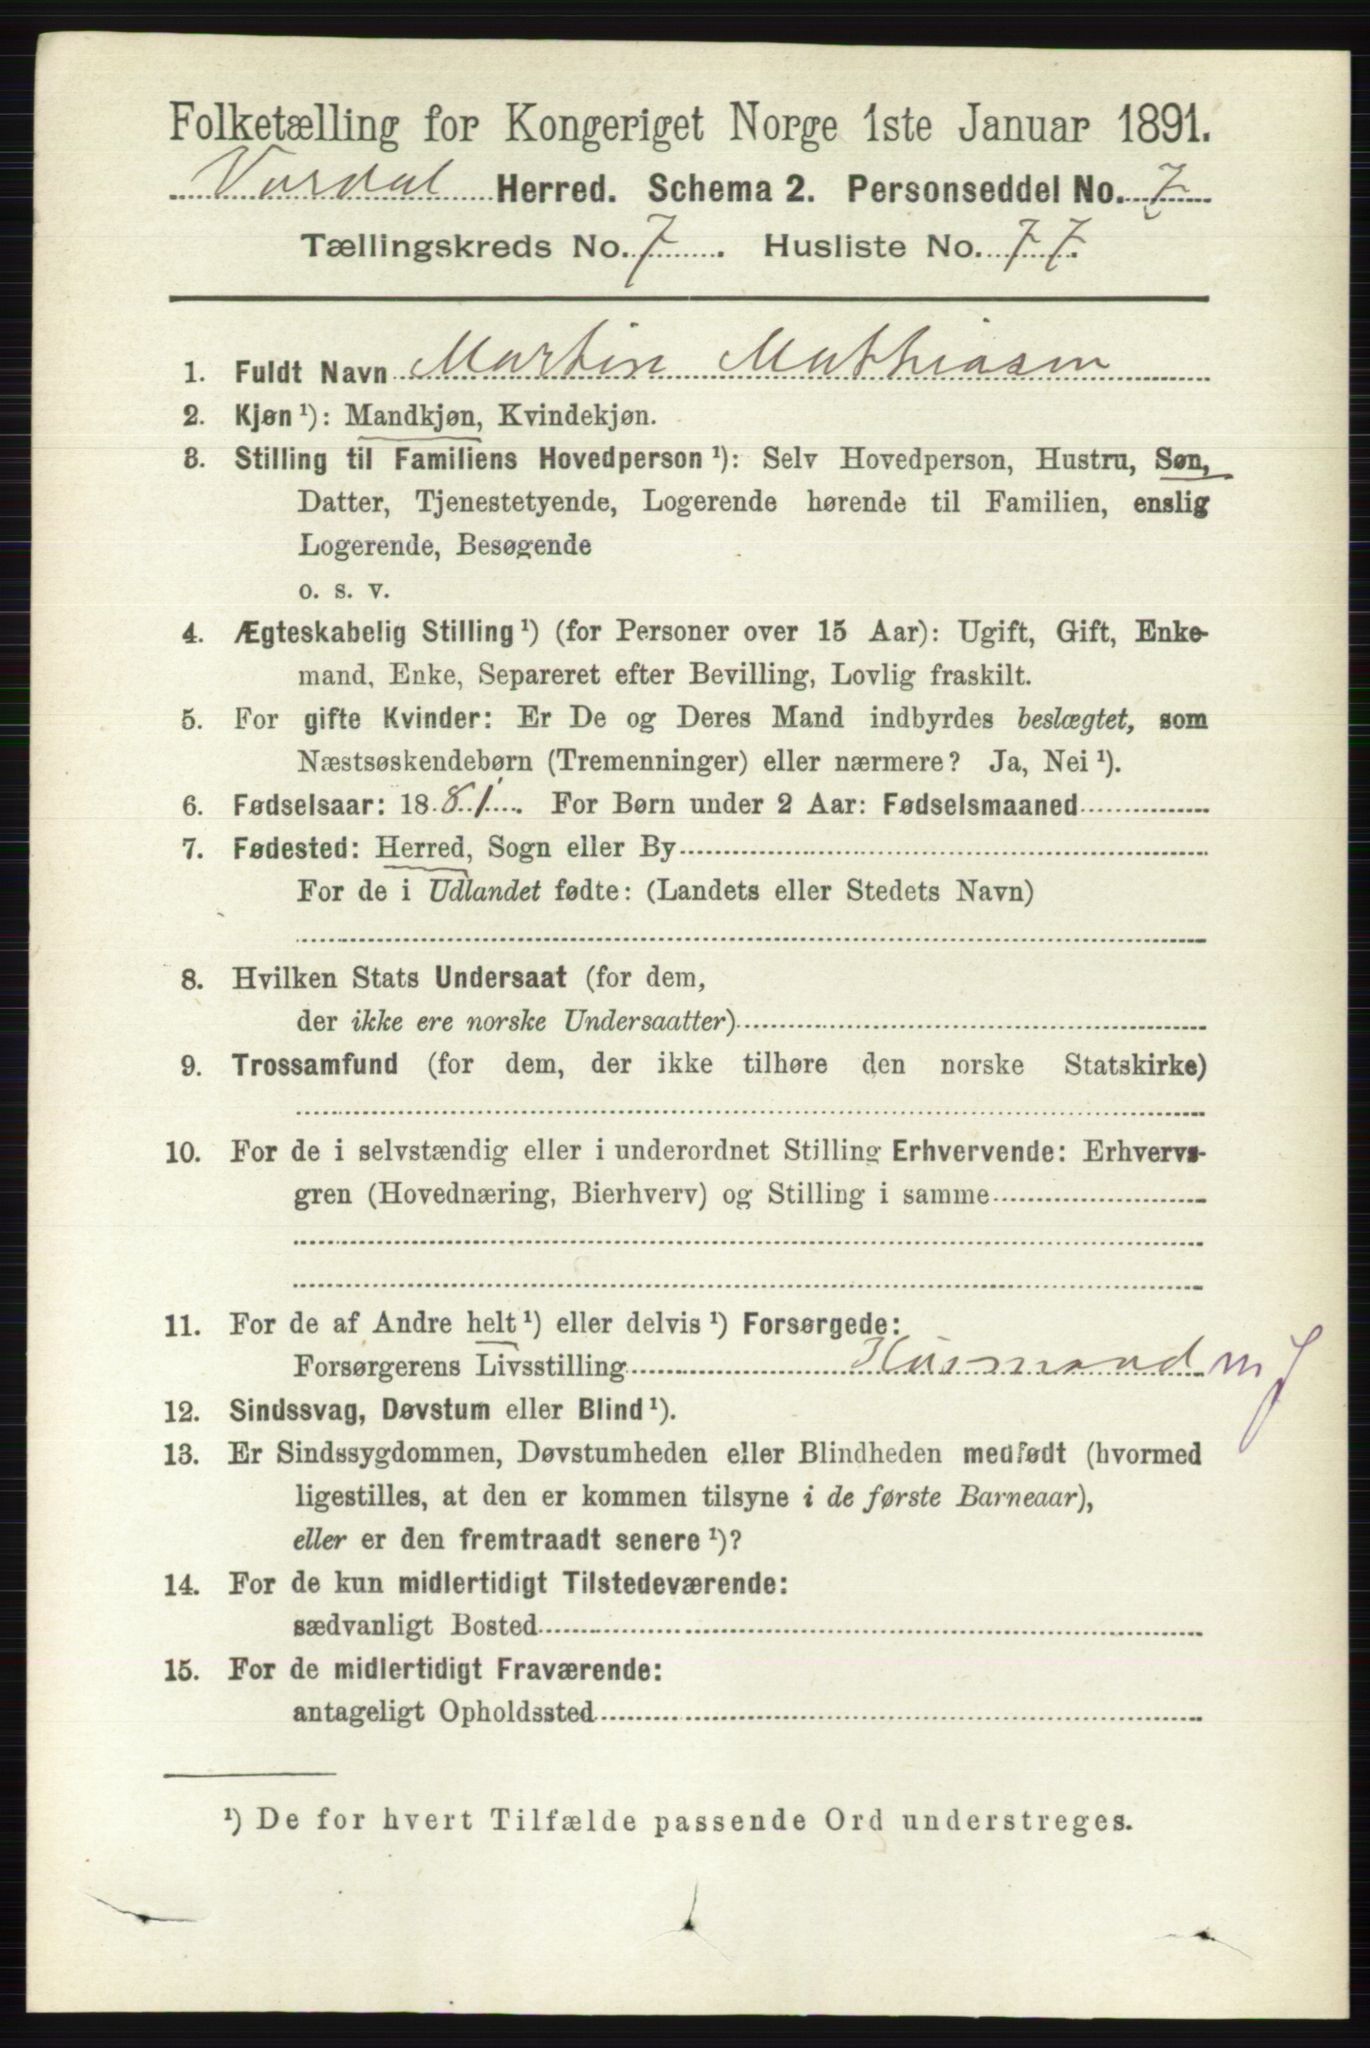 Folketælling for Kongeriget Norge 1ste Januar 1891.
Vardal Herred. Schema 2. Personseddel No. 7
Tællingskreds No. 7. Husliste No. 77.
1. Fuldt Navn Martin Mathiasen
2. Kjøn ¹): Mandkjøn, Kvindekjøn.
3. Stilling til Familiens Hovedperson ¹): Selv Hovedperson, Hustru, Søn,
Datter, Tjenestetyende, Logerende hørende til Familien, enslig
Logerende, Besøgende
o. s. v.
4. Ægteskabelig Stilling ¹) (for Personer over 15 Aar): Ugift, Gift, Enke-
mand, Enke, Separeret efter Bevilling, Lovlig fraskilt.
5. For gifte Kvinder: Er De og Deres Mand indbyrdes beslægtet, som
Næstsøskendebørn (Tremenninger) eller nærmere? Ja, Nei ¹).
6. Fødselsaar: 1881. For Børn under 2 Aar: Fødselsmaaned
7. Fødested: Herred, Sogn eller By
For de i Udlandet fødte: (Landets eller Stedets Navn)
8. Hvilken Stats Undersaat (for dem,
der ikke ere norske Undersaatter)
9. Trossamfund (for dem, der ikke tilhøre den norske Statskirke)
10. For de i selvstændig eller i underordnet Stilling Erhvervende: Erhvervs-
gren (Hovednæring, Bierhverv) og Stilling i samme
11. For de af Andre helt ¹) eller delvis ¹) Forsørgede:
Forsørgerens Livsstilling Husmand m J
12. Sindssvag, Døvstum eller Blind ¹).
13. Er Sindssygdommen, Døvstumheden eller Blindheden medfødt (hvormed
ligestilles, at den er kommen tilsyne i de første Barneaar),
eller er den fremtraadt senere ¹)?
14. For de kun midlertidigt Tilstedeværende:
sædvanligt Bosted
15. For de midlertidigt Fraværende:
antageligt Opholdssted
¹) De for hvert Tilfælde passende Ord understreges.